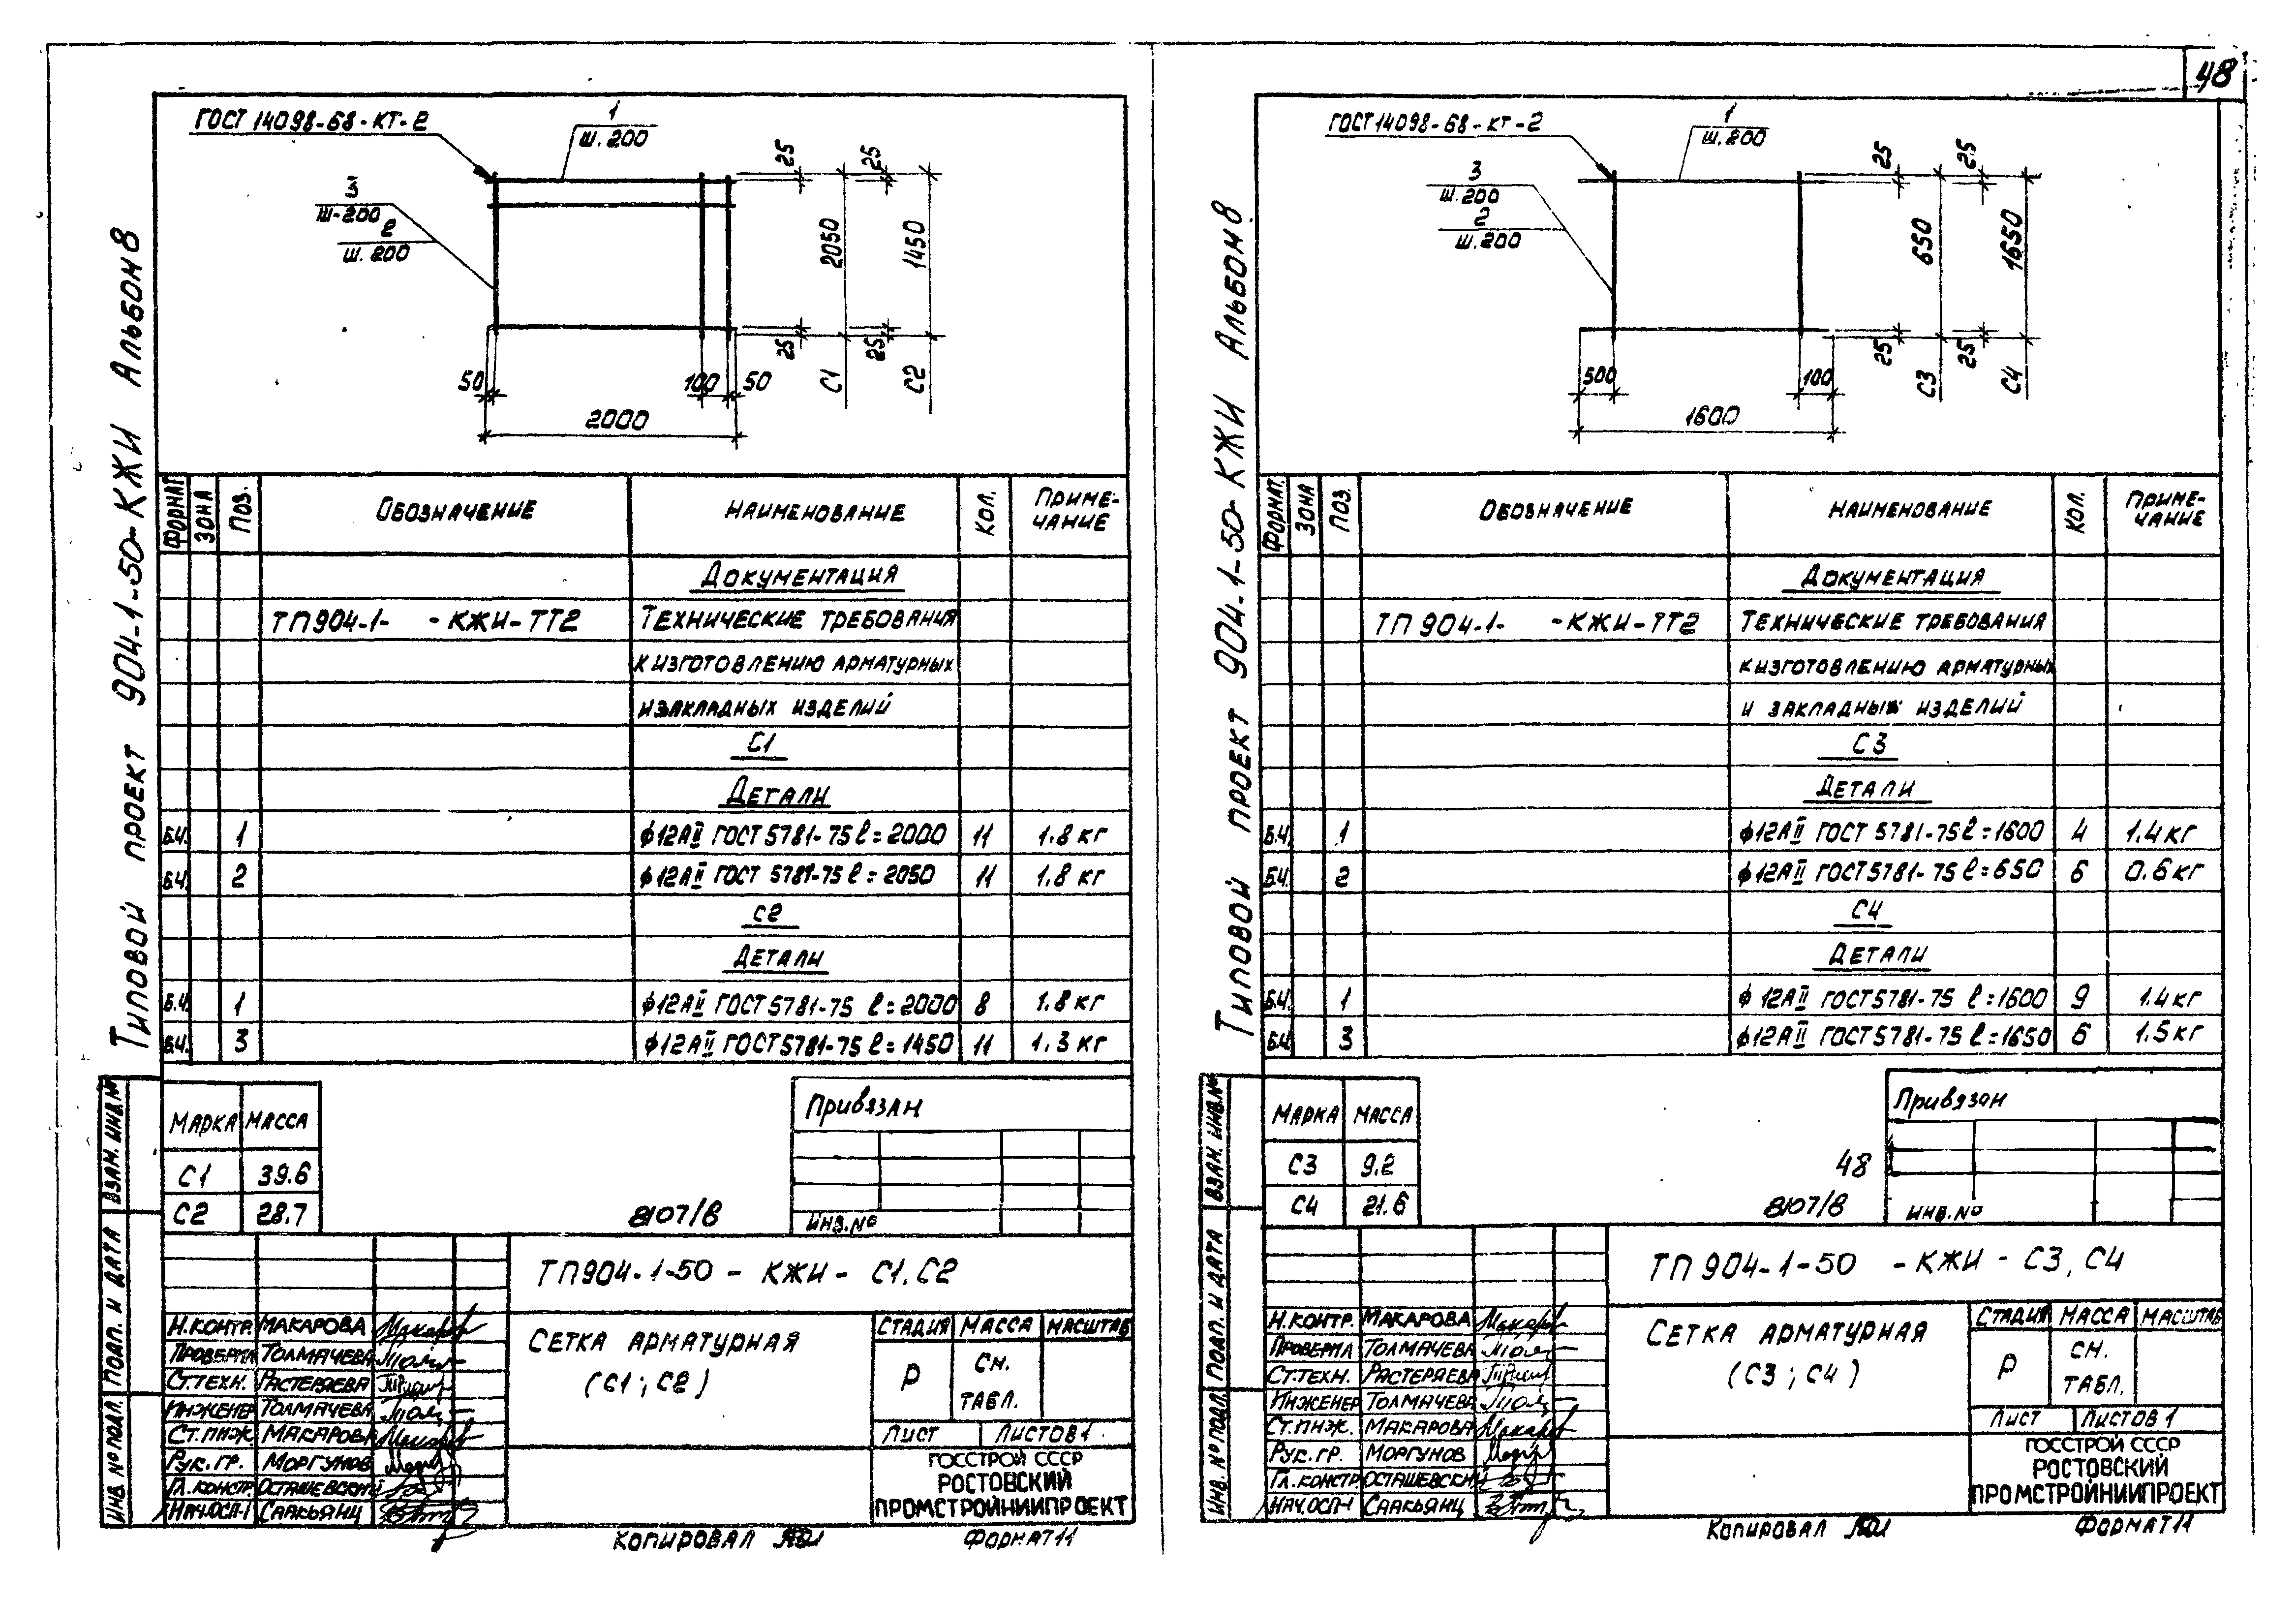 48
Типовой проект 904-1-50-КЖИ Альбом 8
ГОСТ 14098-68-КТ-2
1
Ш.200
3
Ш-200
2
Ш.200
25
25
2050
1450
25
25
С1
С2
50
100
50
2000
ФОРМАТ ЗОНА ПОЗ. ОБОЗНАЧЕНИЕ НАИМЕНОВАНИЕ КОЛ. ПРИМЕ-
ЧАНИЕ
ДОКУМЕНТАЦИЯ
ТП904-1- -КЖИ-ТТ2 ТЕХНИЧЕСКИЕ ТРЕБОВАНИЯ
К ИЗГОТОВЛЕНИЮ АРМАТУРНЫХ
И ЗАКЛАДНЫХ ИЗДЕЛИЙ
С1
ДЕТАЛИ
Б.Ч. 1 ф12АII ГОСТ 5781-75 ℓ=2000 11 1.8 кг
Б.Ч. 2 ф12АII ГОСТ 5781-75 ℓ=2050 11 1.8 кг
С2
ДЕТАЛИ
Б.Ч. 1 ф12АII ГОСТ 5781-75 ℓ=2000 8 1.8 кг
Б.Ч. 3 ф12АII ГОСТ 5781-75 ℓ=1450 11 1.3 кг
МАРКА МАССА
С1 39.6
С2 28.7
8107/8
Привязан
ИНВ.№
ВЗАМ. ИНВ.№
ПОДП. И ДАТА
ИНВ. № ПОДЛ.
ТП904-1-50 - КЖИ - С1, С2
Н.КОНТР. МАКАРОВА
ПРОВЕРИЛ ТОЛМАЧЕВА
СТ.ТЕХН. РАСТЕРЯЕВА
ИНЖЕНЕР ТОЛМАЧЕВА
СТ.ИНЖ. МАКАРОВА
РУК.ГР. МОРГУНОВ
ГЛ.КОНСТР. ОСТАШЕВСКИЙ
НАЧ.ОСП-1 СААКЬЯНЦ
СЕТКА АРМАТУРНАЯ
(С1; С2)
СТАДИЯ МАССА МАСШТАБ
Р СМ.
ТАБЛ.
ЛИСТ ЛИСТОВ 1
ГОССТРОЙ СССР
РОСТОВСКИЙ
ПРОМСТРОЙНИИПРОЕКТ
КОПИРОВАЛ
ФОРМАТ 11
Типовой проект 904-1-50-КЖИ Альбом 8
ГОСТ 14098-68-КТ-2
1
Ш.200
3
Ш.200
2
Ш.200
25
25
650
1650
25
25
С3
С4
500
100
1600
ФОРМАТ. ЗОНА ПОЗ. ОБОЗНАЧЕНИЕ НАИМЕНОВАНИЕ КОЛ. ПРИМЕ-
ЧАНИЕ
ДОКУМЕНТАЦИЯ
ТП 904-1- -КЖИ-ТТ2 ТЕХНИЧЕСКИЕ ТРЕБОВАНИЯ
К ИЗГОТОВЛЕНИЮ АРМАТУРНЫХ
И ЗАКЛАДНЫХ ИЗДЕЛИЙ
С3
ДЕТАЛИ
Б.Ч. 1 ф12АII ГОСТ 5781-75 ℓ=1600 4 1.4 кг
Б.Ч. 2 ф12АII ГОСТ 5781-75 ℓ=650 6 0.6 кг
С4
ДЕТАЛИ
Б.Ч. 1 ф12АII ГОСТ 5781-75 ℓ=1600 9 1.4 кг
Б.Ч. 3 ф12АII ГОСТ 5781-75 ℓ=1650 6 1.5 кг
МАРКА МАССА
С3 9.2
С4 21.6
48
8107/8
Привязан
ИНВ.№
ВЗАМ. ИНВ.№
ПОДП. И ДАТА
ИНВ. № ПОДЛ.
ТП 904-1-50 - КЖИ - С3, С4
Н.КОНТР. МАКАРОВА
ПРОВЕРИЛ ТОЛМАЧЕВА
СТ.ТЕХН. РАСТЕРЯЕВА
ИНЖЕНЕР ТОЛМАЧЕВА
СТ.ИНЖ. МАКАРОВА
РУК.ГР. МОРГУНОВ
ГЛ.КОНСТР ОСТАШЕВСКИЙ
НАЧ.ОСП-1 СААКЬЯНЦ
СЕТКА АРМАТУРНАЯ
(С3; С4)
СТАДИЯ МАССА МАСШТАБ
Р СМ.
ТАБЛ.
ЛИСТ ЛИСТОВ 1
ГОССТРОЙ СССР
РОСТОВСКИЙ
ПРОМСТРОЙНИИПРОЕКТ
КОПИРОВАЛ
ФОРМАТ 11